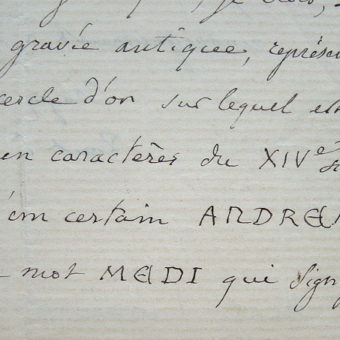 , je crois,
gravée antique, représen
cercle d'or sur lequel est
en caractères du XIVe s
d'un certain ANDREA
mot MEDI qui sign